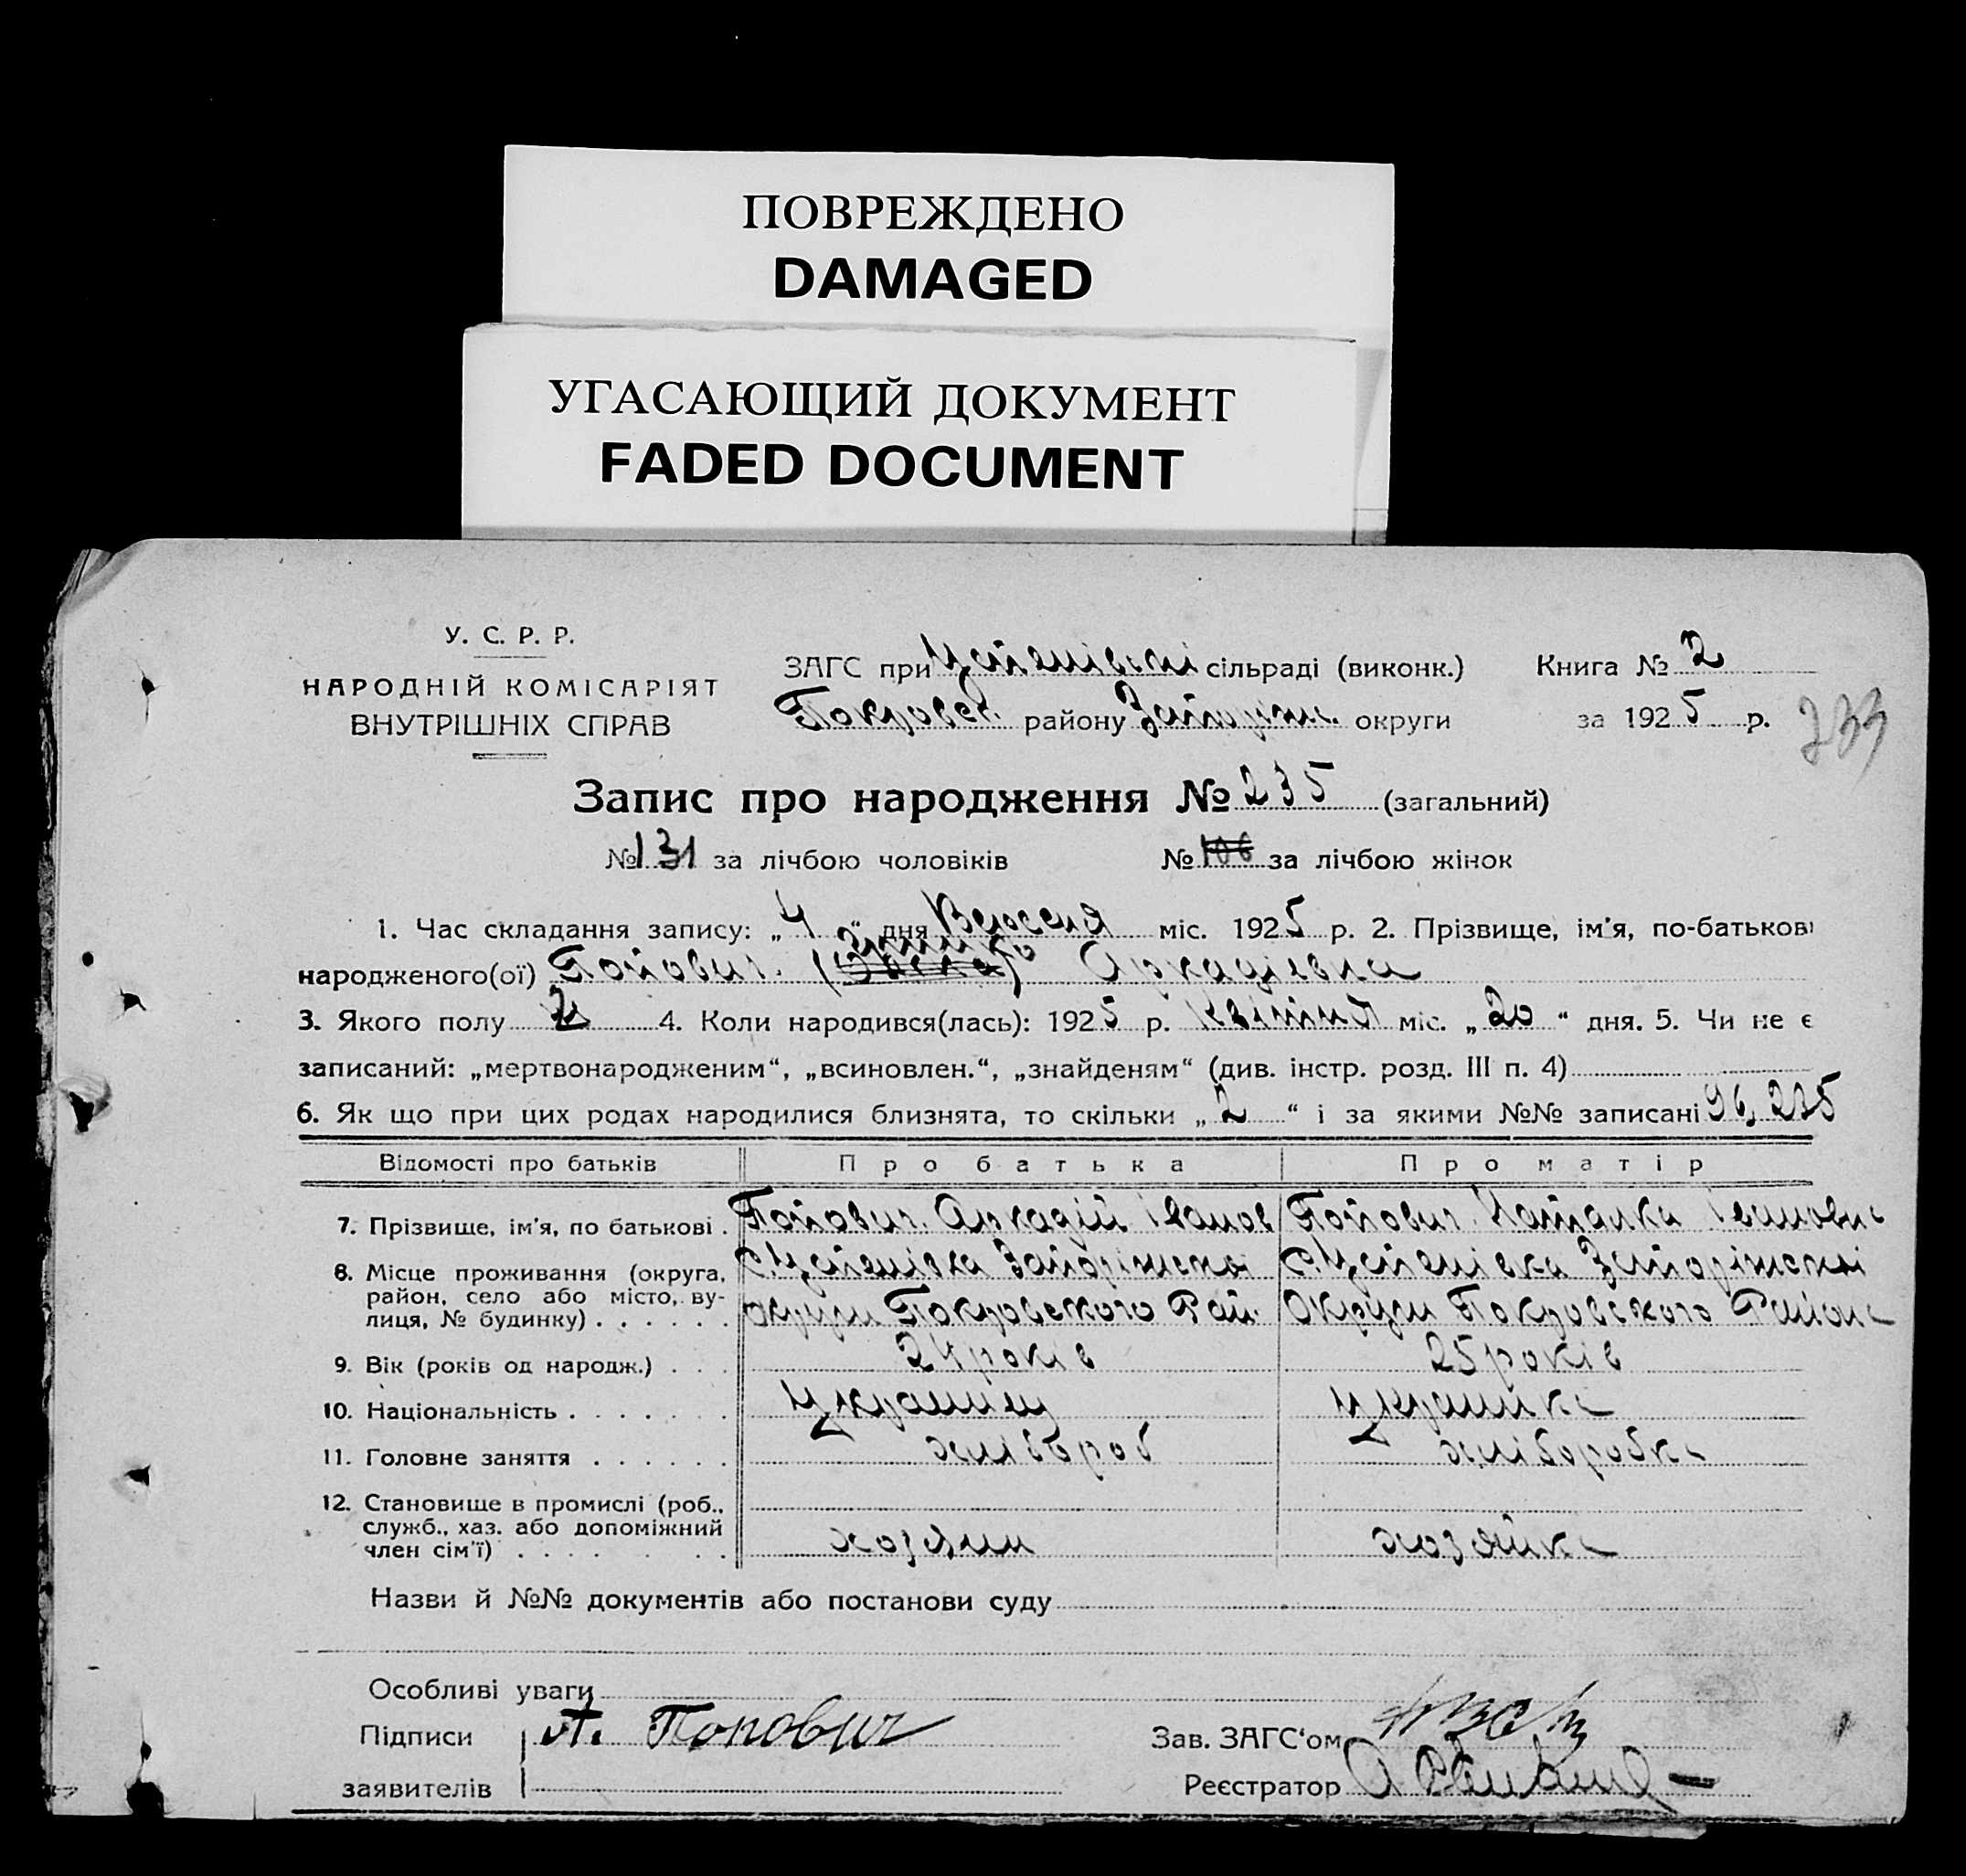 ПОВРЕЖДЕНО
DAMAGED
УГАСАЮЩИЙ ДОКУМЕНТ
FADED DOCUMENT
У. С. Р. Р.
НАРОДНІЙ КОМІСАРІЯТ
ВНУТРІШНІХ СПРАВ
ЗАГС при Успенівскі сільраді (виконк.) Книга № 2
Покровск. району Запоріжс. округи за 1925 р.
Запис про народження № 235 (загальний)
№ 131 за лічбою чоловіків № 106 за лічбою жінок
1. Час складання запису: „4“ дня Вересня міс. 1925 р. 2. Прізвище, ім'я, по-батькові
народженого(ої) Попович. Аркадієвна
3. Якого полу 4. Коли народився(лась): 1925 р. Квітня міс. „20“ дня. 5. Чи не є
записаний: „мертвонародженим“, „всиновлен.“, „знайденям“ (див. інстр. розд. III п. 4)
6. Як що при цих родах народилися близнята, то скільки „2“ і за якими №№ записані 96, 235
Відомості про батьків Про батька Про матір
7. Прізвище, ім'я, по батькові . Попович. Аркадій Іванов Попович. Наталка Івановна
8. Місце проживання (округа, район, село або місто, вулиця, № будинку) . . . . . . С. Успенівка Запоріжскої округи Покровского Рай. С. Успенівка Запоріжскої Округи Покровского Района
9. Вік (років од народж.) . . . 24 років 25 років
10. Національність . . . . . . . Украинц украинка
11. Головне заняття . . . . . . хлібороб хліборобка
12. Становище в промислі (роб., служб., хаз. або допоміжний член сім'ї) . . . . . . . хозяин хозяйка
Назви й №№ документів або постанови суду
Особливі уваги
Підписи А. Попович Зав. ЗАГС'ом
заявителів Реєстратор